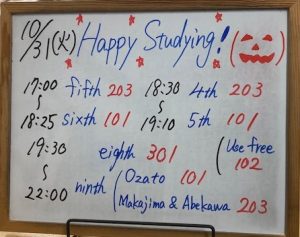 10/31(火) Happy Studying!
17:00 fifth 203 18:30 4th 203
18:25 sixth 101 19:10 5th 101
19:30 eighth 301 (Use free 102
22:00 ninth (Ozato 101
Makajima & Abekawa 203